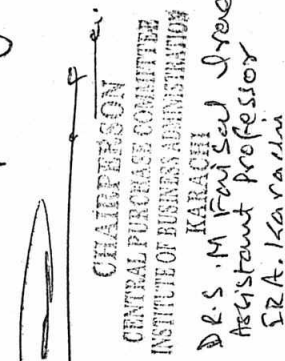 CHAIRPERSON
CENTRAL PURCHASE COMMITTEE
INSTITUTE OF BUSINESS ADMINISTRATION
KARACHI
DR.S.M Faisal
Assistant Professor
Karachi